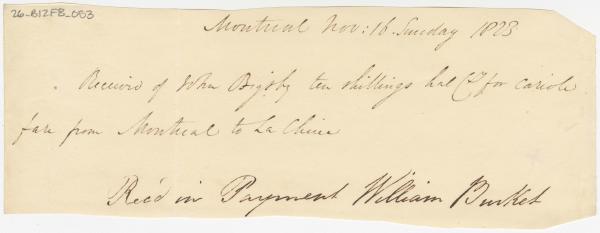 26-B12F8-053
Montreal Nov: 16. Sunday 1823
Received of John Bigsby ten shillings hal Cy for cariole
fare from Montreal to La Chine
Rec'd in Payment William Burket